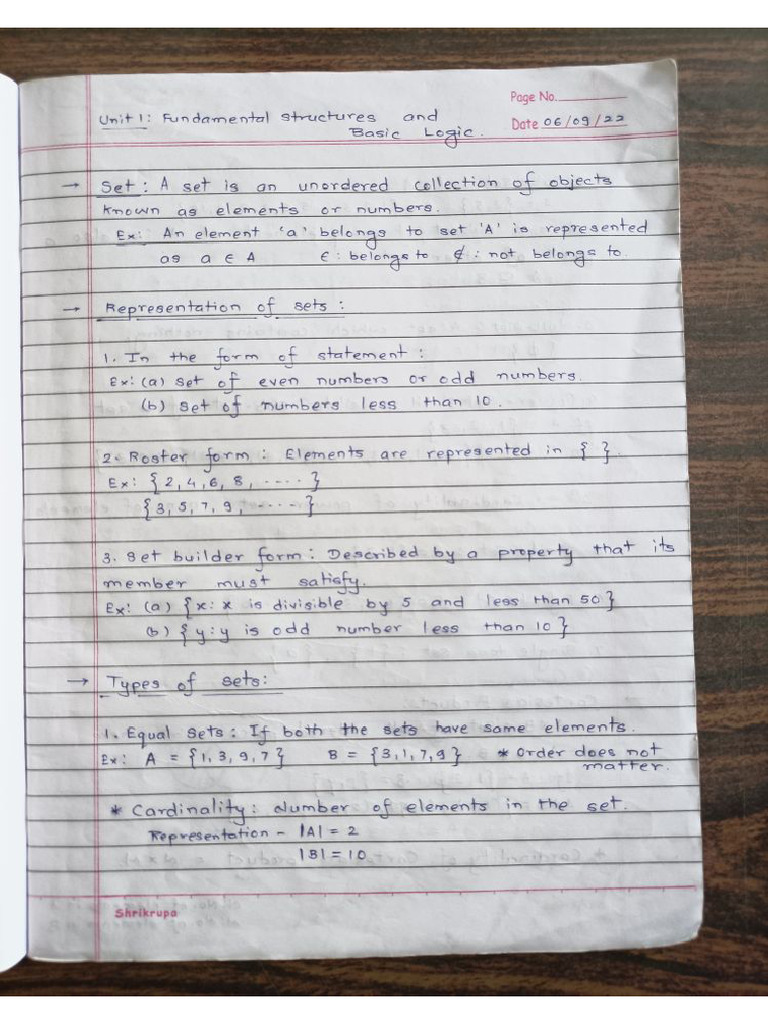 Page No.
Unit 1: Fundamental structures and
Basic Logic.
Date 06/09/22
→ Set: A set is an unordered collection of objects
known as elements or numbers.
Ex: An element 'a' belongs to set 'A' is represented
as a ∈ A ∈: belongs to ∉: not belongs to.
→ Representation of sets:
1. In the form of statement:
Ex: (a) set of even numbers or odd numbers.
(b) set of numbers less than 10.
2. Roster form: Elements are represented in { }.
Ex: {2, 4, 6, 8, ....}
{3, 5, 7, 9, .....}
3. Set builder form: Described by a property that its
member must satisfy.
Ex: (a) {x: x is divisible by 5 and less than 50}
(b) {y: y is odd number less than 10}
→ Types of sets:
1. Equal sets: If both the sets have same elements.
Ex: A = {1, 3, 9, 7} B = {3, 1, 7, 9} * Order does not
matter.
* Cardinality: Number of elements in the set.
Representation - |A| = 2
|B| = 10
Shrikrupa